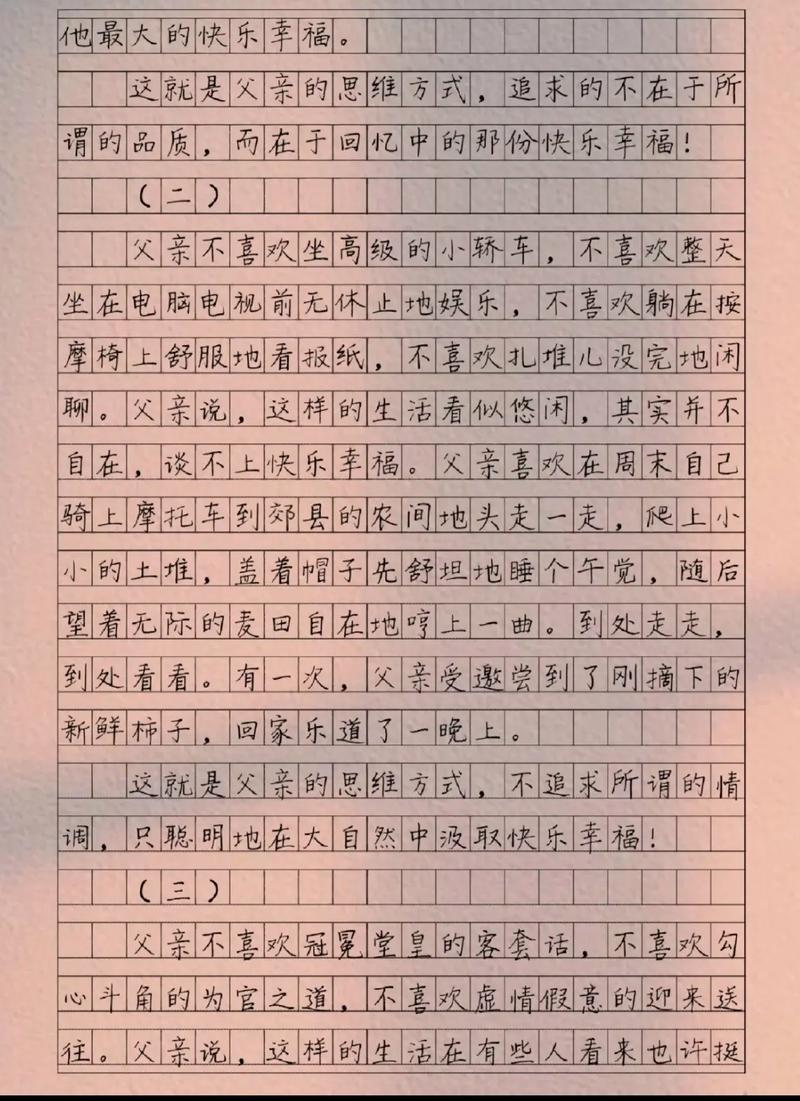 他最大的快乐幸福。
这就是父亲的思维方式，追求的不在于所
谓的品质，而在于回忆中的那份快乐幸福！
（二）
父亲不喜欢坐高级的小轿车，不喜欢整天
坐在电脑电视前无休止地娱乐，不喜欢躺在按
摩椅上舒服地看报纸，不喜欢扎堆儿没完地闲
聊。父亲说，这样的生活看似悠闲，其实并不
自在，谈不上快乐幸福。父亲喜欢在周末自己
骑上摩托车到郊县的农间地头走一走，爬上小
小的土堆，盖着帽子先舒坦地睡个午觉，随后
望着无际的麦田自在地哼上一曲。到处走走，
到处看看。有一次，父亲受邀尝到了刚摘下的
新鲜柿子，回家乐道了一晚上。
这就是父亲的思维方式，不追求所谓的情
调，只聪明地在大自然中汲取快乐幸福！
（三）
父亲不喜欢冠冕堂皇的客套话，不喜欢勾
心斗角的为官之道，不喜欢虚情假意的迎来送
往。父亲说，这样的生活在有些人看来也许挺